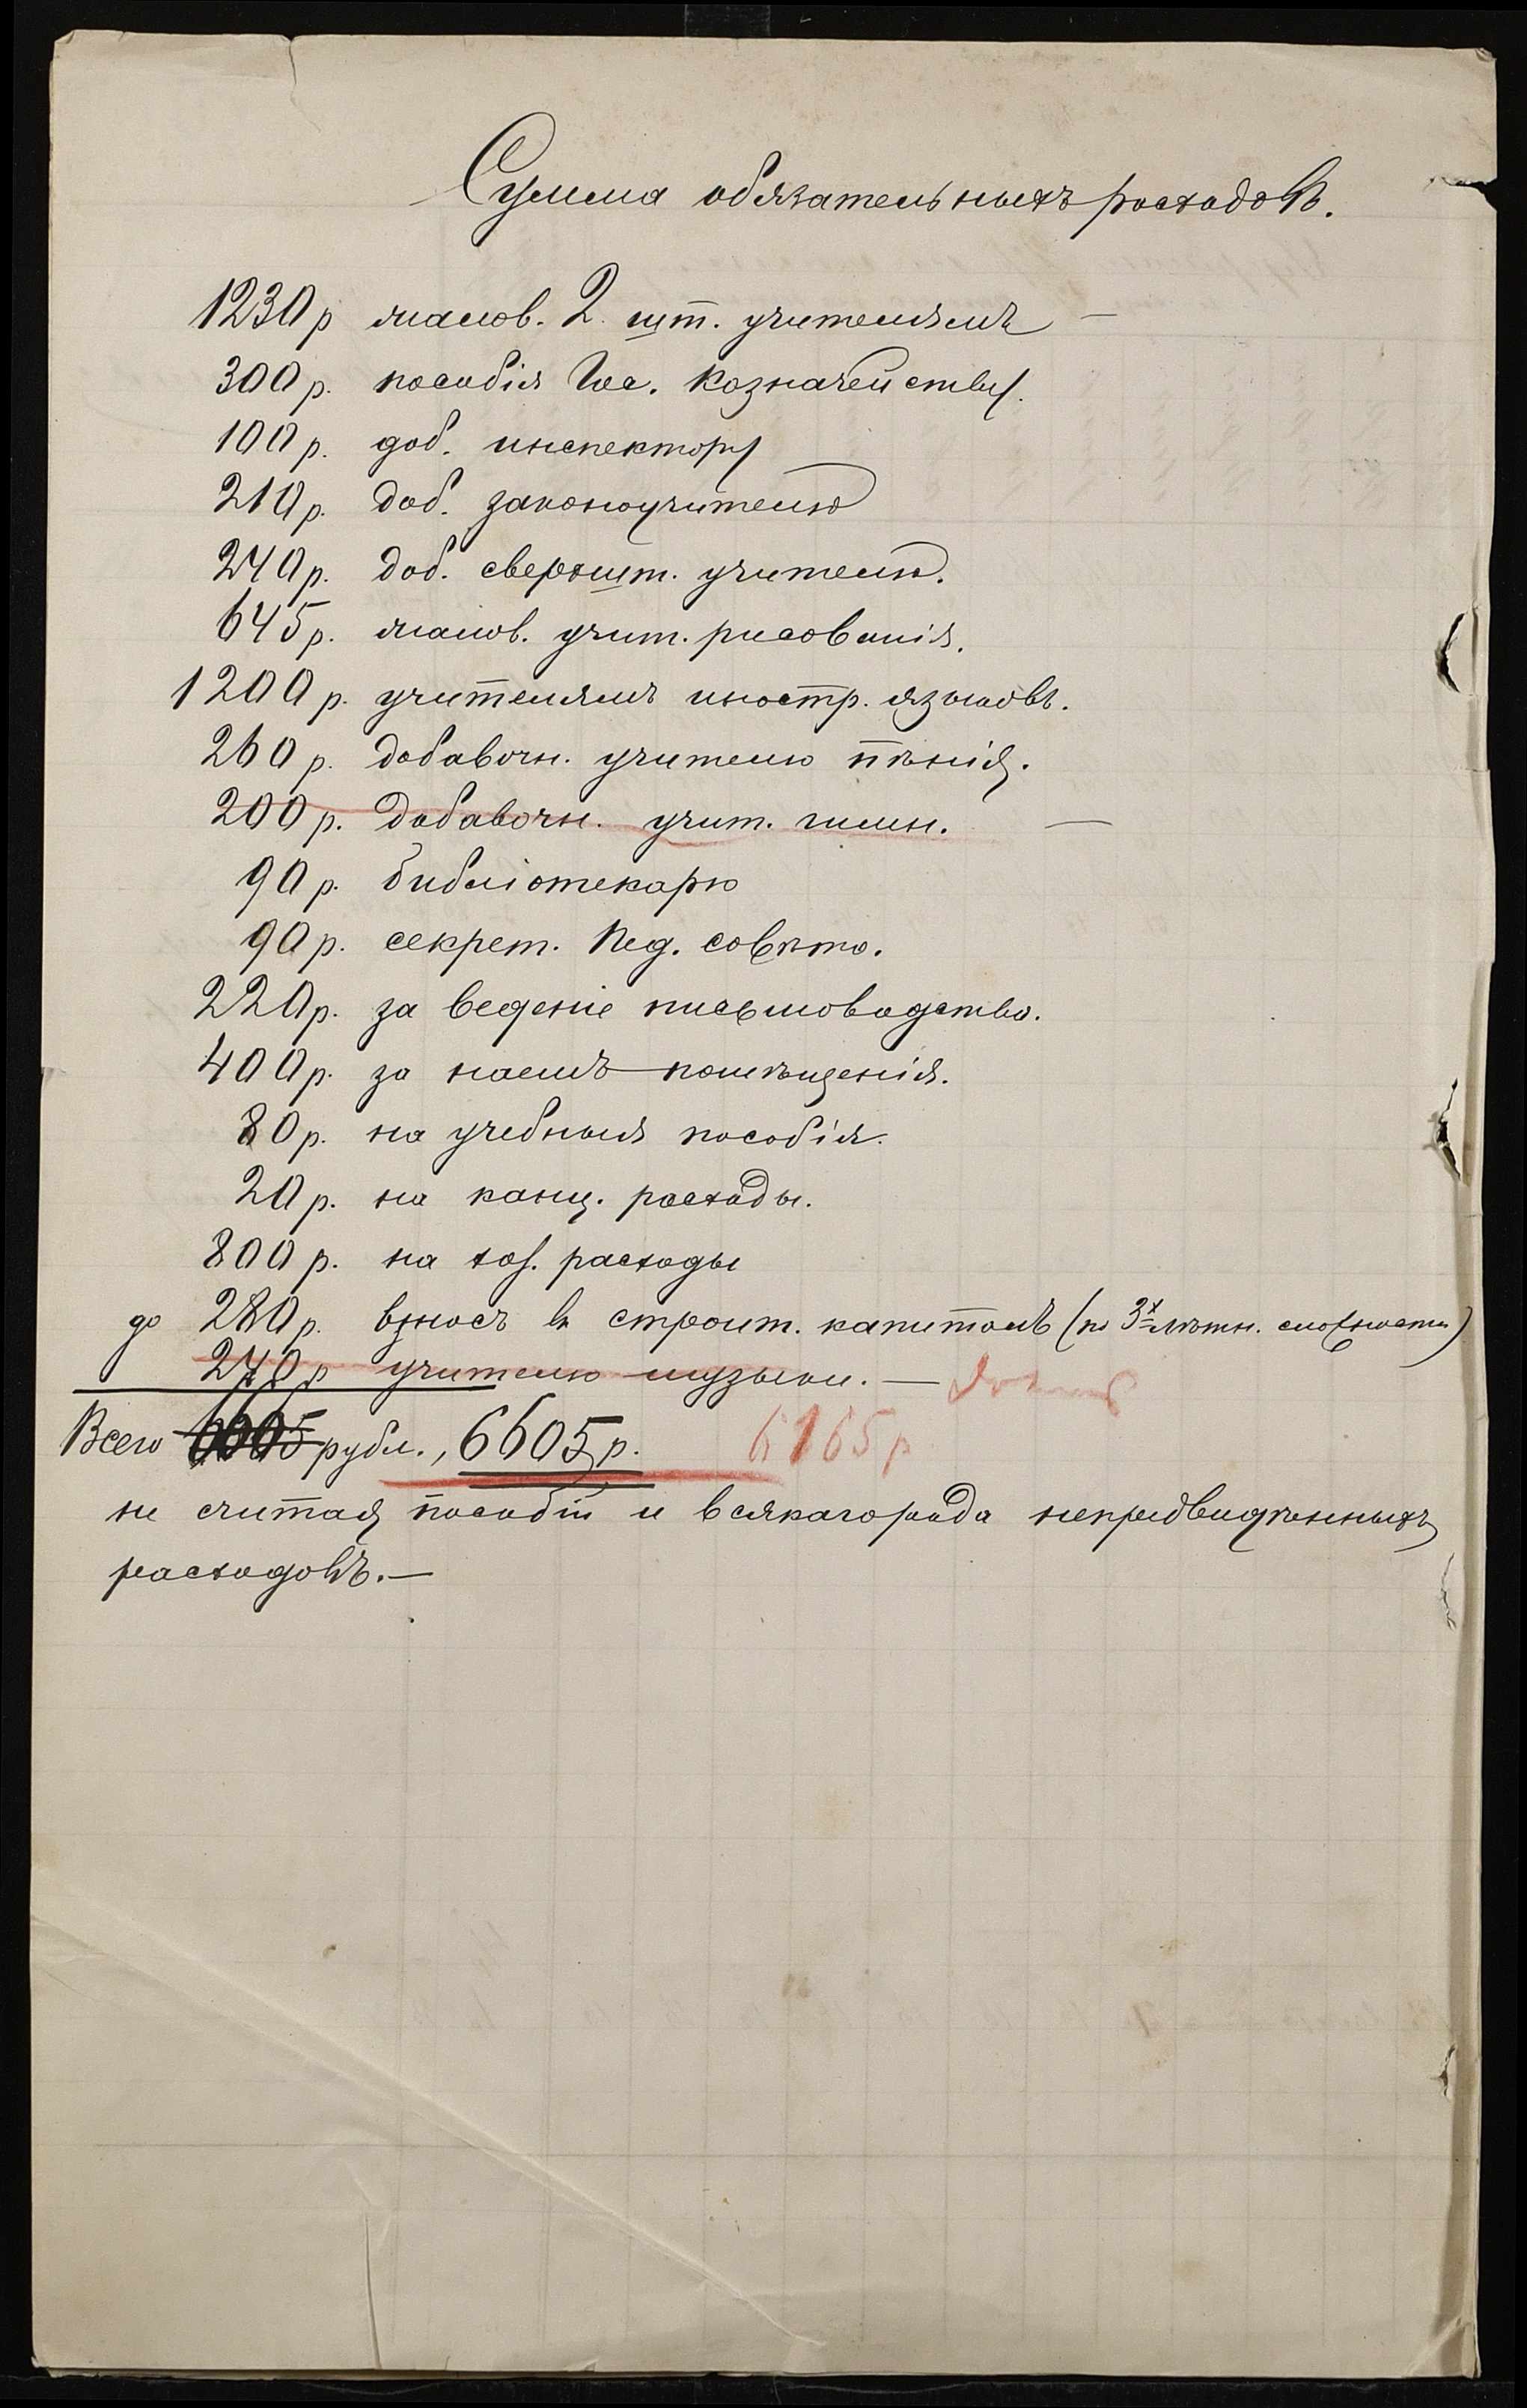 Сумма обязательныхъ расходовъ.
1230 р жалов. 2 шт. учителямъ —
300 р. пособія Гос. Казначейству.
100 р. доб. инспектору
210 р. доб. законоучителю
240 р. доб. сверхшт. учителю.
645 р. жалов. учит. рисованія.
1200 р. учителямъ иностр. языковъ.
260 р. добавочн. учителю пѣнія.
200 р. добавочн. учит. гимн. —
90 р. библіотекарю
90 р. секрет. Пед. совѣта.
220 р. за веденіе письмоводства.
400 р. за наемъ помѣщенія.
80 р. на учебныя пособія.
20 р. на канц. расходы.
800 р. на хоз. расходы
до 280 р. взносъ въ строит. капиталъ (по 3х лѣтн. сложности)
240 р учителю музыки. —
Всего рубл., 6605 р. 6165 р
не считая пособій и всякаго рода непредвидѣнныхъ
расходовъ. —